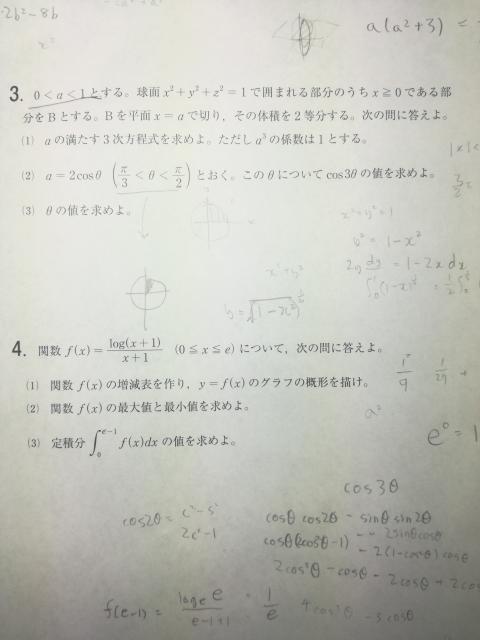 2b² - 8b
a(a² + 3)
x²
3. 0 < a < 1とする。球面 x² + y² + z² = 1で囲まれる部分のうち x ≧ 0である部
分をBとする。Bを平面 x = a で切り，その体積を2等分する。次の問に答えよ。
(1) a の満たす3次方程式を求めよ。ただし a³ の係数は1とする。
(2) a = 2cosθ (π/3 < θ < π/2) とおく。このθについてcos3θの値を求めよ。
(3) θの値を求めよ。
x² + y² = 1
y² = 1 - x²
2y dy/dx = 1 - 2x dx
x² + y²
4. 関数 f(x) = log(x+1)/(x+1) (0 ≦ x ≦ e) について，次の問に答えよ。
(1) 関数 f(x) の増減表を作り，y = f(x) のグラフの概形を描け。
(2) 関数 f(x) の最大値と最小値を求めよ。
(3) 定積分 ∫₀^{e-1} f(x)dx の値を求めよ。
a²
e⁰ = 1
cos3θ
cos2θ = c² - s²
2c² - 1
cosθ cos2θ - sinθ sin2θ
2cos³θ - cosθ - 2cosθ + 2cos
f(e-1) = log_e e / e-1+1 = 1/e
4cos³θ - 3cosθ